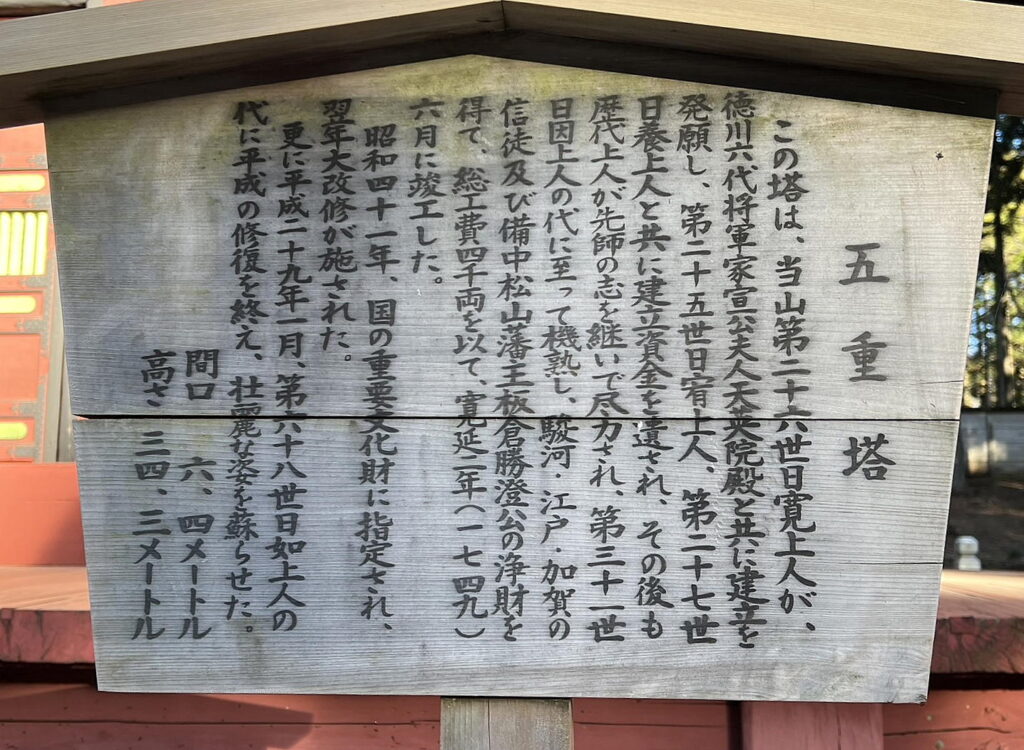 五重塔
この塔は、当山第二十六世日寛上人が、
徳川六代将軍家宣公夫人天英院殿と共に建立を
発願し、第二十五世日宥上人、第二十七世
日養上人と共に建立資金を遺され、その後も
歴代上人が先師の志を継いで尽力され、第三十一世
日因上人の代に至って機熟し、駿河・江戸・加賀の
信徒及び備中松山藩主板倉勝澄公の浄財を
得て、総工費四千両を以て、寛延二年（一七四九）
六月に竣工した。
昭和四十一年、国の重要文化財に指定され、
翌年大改修が施された。
更に平成二十九年一月、第六十八世日如上人の
代に平成の修復を終え、壮麗な姿を蘇らせた。
間口　六、四メートル
高さ　三四、三メートル